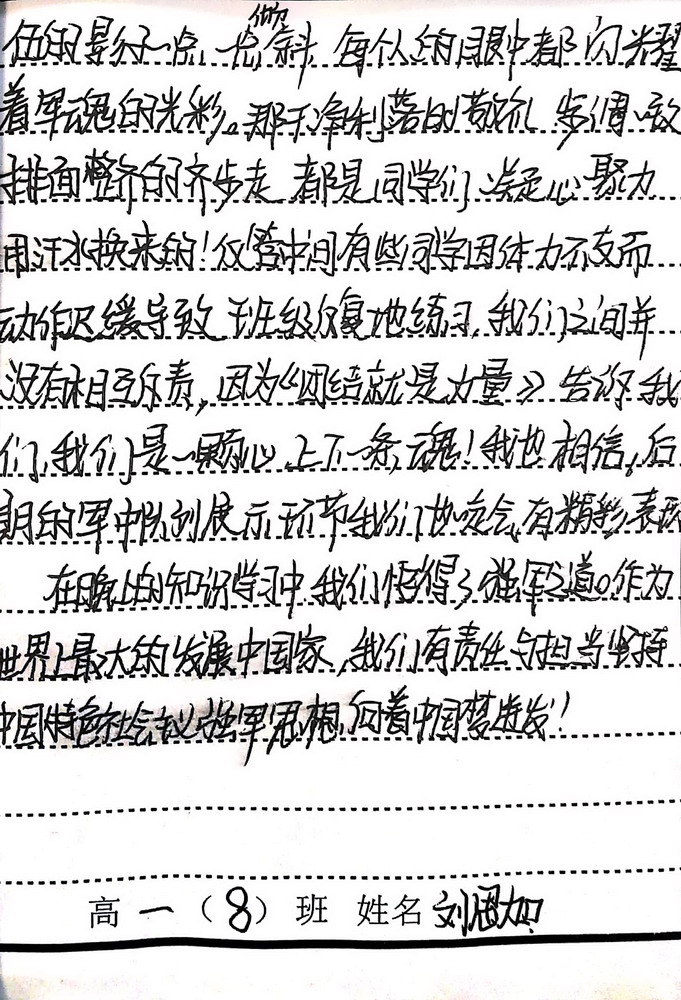 伍的影子一点、一点倾斜,每个人的眼中都闪耀
着军魂的光彩。那干净利落的敬礼,步调一致
排面整齐的齐步走,都是同学们凝心聚力
用汗水换来的!仅管中间有些同学因体力不支而
动作迟缓导致班级反复地练习,我们之间并
没有相互斥责,因为《团结就是力量》告诉我
们,我们是一颗心,上下一条魂!我也相信,后
期的军中队列展示环节我们也定会有精彩表现
在晚上的知识学习中,我们悟得了强军之道。作为
世界上最大的发展中国家,我们有责任与担当坚持
中国特色社会主义强军思想,向着中国梦进发!
高一(8)班 姓名 刘思如